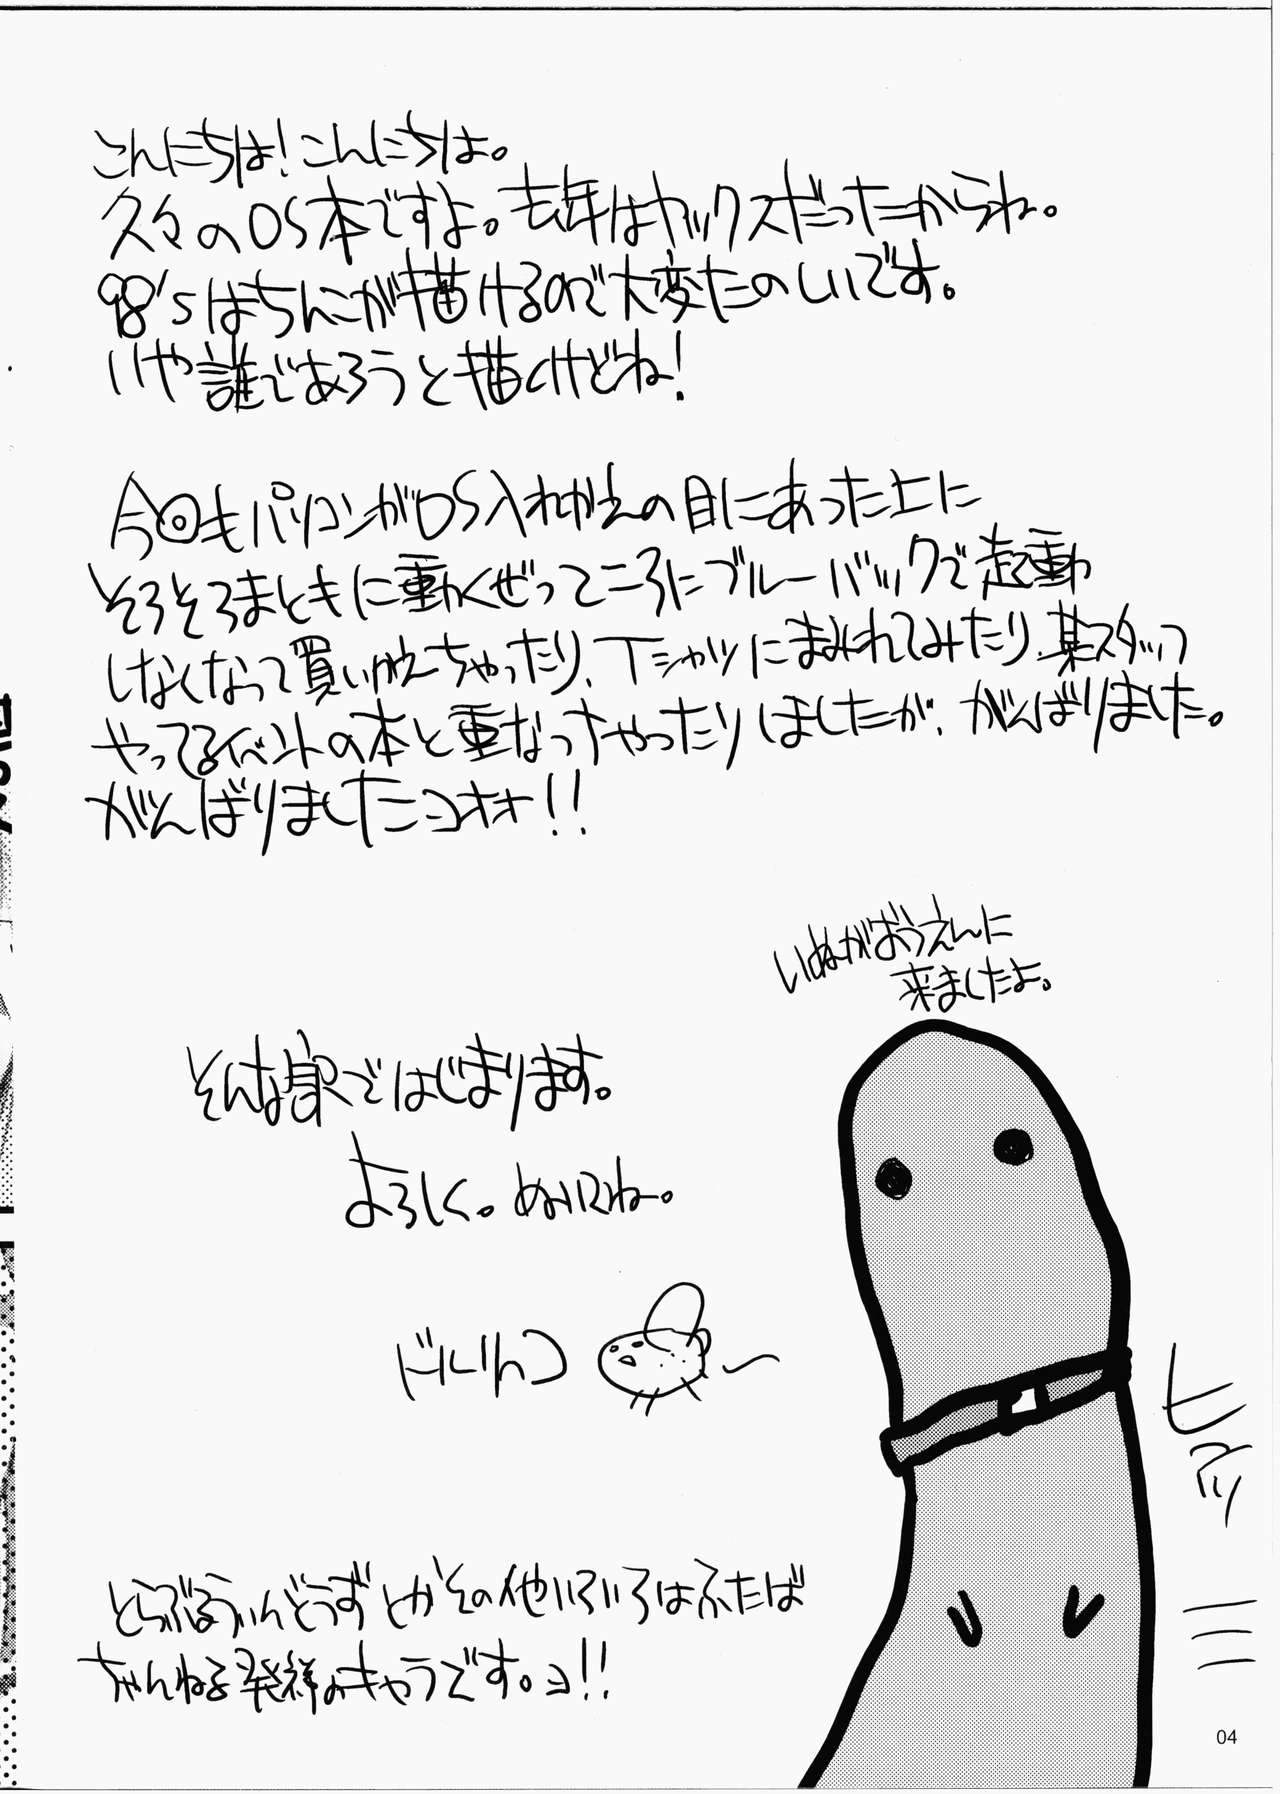 こんにちは!こんにちは。
久々のOS本ですよ。去年はヤックスだったからね。
98'sはちんこが描けるので大変たのしいです。
いや誰であろうと描くけどね!
今回もパソコンがOS入れかえの目にあった上に
そろそろまともに動くぜってころにブルーバックで起動
しなくなって買いかえちゃったり、Tシャツにまみれてみたり、某スタッフ
やってるイベントの本と重なっちゃったりしましたが、がんばりました。
がんばりましたニョオオ!!
いぬがおうえんに
来ましたよ。
そんな訳ではじまります。
よろしく。ぬいにね。
ドルリハつ
ヒアッ
とらぶるういんどうずとかその他いろいろはふたば
ちゃんねる発祥のキャラです。ヨ!!
04